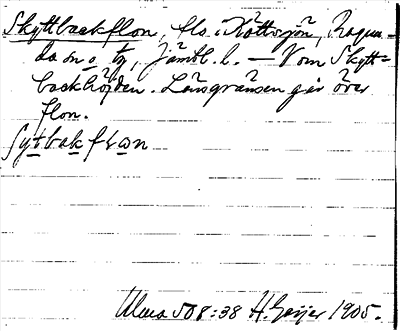 Skyttbackflon, fls. i Köttsjön, Ragun-
da sn o. tg, Jämtl. l. — Vom Skytt-
backhöjden. Länsgränsen går över
flon.
Ulma 508:38 H. Geijer 1905.